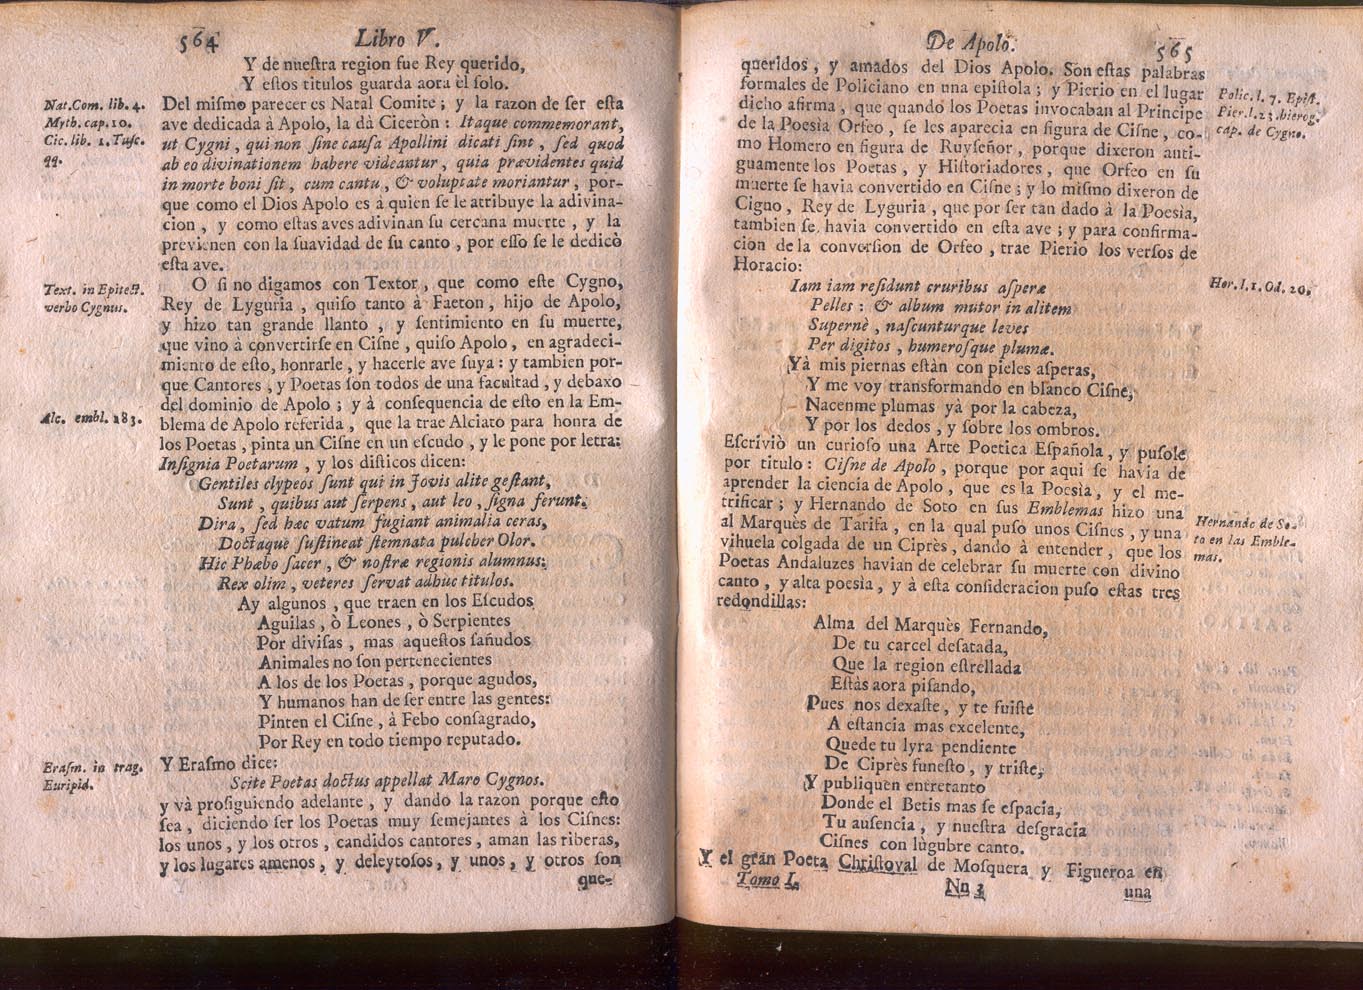 564 Libro V.
Y de nueſtra region fue Rey querido,
Y eſtos titulos guarda aora èl ſolo.
Nat.Com. lib. 4.
Myth. cap. 10.
Cic. lib. 1. Tuſc.
qq.
Del miſmo parecer es Natal Comite ; y la razon de ſer eſta
ave dedicada à Apolo, la dà Ciceròn : Itaque commemorant,
ut Cygni , qui non ſine cauſa Apollini dicati ſint , ſed quod
ab eo divinationem habere videantur , quia prævidentes quid
in morte boni ſit , cum cantu , & voluptate moriantur , por-
que como el Dios Apolo es à quien ſe le atribuye la adivina-
cion , y como eſtas aves adivinan ſu cercana muerte , y la
previenen con la ſuavidad de ſu canto , por eſſo ſe le dedicò
eſta ave.
Text. in Epitect.
verbo Cygnus.
O ſi no digamos con Textor , que como eſte Cygno,
Rey de Lyguria , quiſo tanto à Faeton, hijo de Apolo,
y hizo tan grande llanto , y ſentimiento en ſu muerte,
que vino à convertirſe en Ciſne , quiſo Apolo , en agradeci-
miento de eſto, honrarle , y hacerle ave ſuya : y tambien por-
que Cantores , y Poetas ſon todos de una facultad , y debaxo
del dominio de Apolo ; y à conſequencia de eſto en la Em-
Alc. embl. 183.
blema de Apolo referida , que la trae Alciato para honra de
los Poetas , pinta un Ciſne en un eſcudo , y le pone por letra:
Inſignia Poetarum , y los diſticos dicen:
Gentiles clypeos ſunt qui in Jovis alite geſtant,
Sunt , quibus aut ſerpens , aut leo , ſigna ferunt.
Dira , ſed hæc vatum fugiant animalia ceras,
Doctaque ſuſtineat ſtemnata pulcher Olor.
Hic Phæbo ſacer , & noſtræ regionis alumnus:
Rex olim , veteres ſervat adhuc titulos.
Ay algunos , que traen en los Eſcudos
Aguilas , ò Leones , ò Serpientes
Por diviſas , mas aqueſtos ſañudos
Animales no ſon pertenecientes
A los de los Poetas , porque agudos,
Y humanos han de ſer entre las gentes:
Pinten el Ciſne , à Febo conſagrado,
Por Rey en todo tiempo reputado.
Eraſm. in trag.
Euripid.
Y Eraſmo dice:
Scite Poetas doctus appellat Maro Cygnos.
y và proſiguiendo adelante , y dando la razon porque eſto
ſea , diciendo ſer los Poetas muy ſemejantes à los Ciſnes:
los unos , y los otros , candidos cantores , aman las riberas,
y los lugares amenos , y deleytoſos , y unos , y otros ſon
que-
De Apolo. 565
queridos , y amados del Dios Apolo. Son eſtas palabras
formales de Policiano en una epiſtola ; y Pierio en el lugar
Polic. l. 7. Epiſt.
Pier. l. 23. hierog.
cap. de Cygno.
dicho afirma , que quando los Poetas invocaban al Principe
de la Poesìa Orfeo , ſe les aparecia en figura de Ciſne , co-
mo Homero en figura de Ruyſeñor , porque dixeron anti-
guamente los Poetas , y Hiſtoriadores , que Orfeo en ſu
muerte ſe havia convertido en Ciſne ; y lo miſmo dixeron de
Cigno , Rey de Lyguria , que por ſer tan dado à la Poesìa,
tambien ſe havia convertido en eſta ave ; y para confirma-
cion de la converſion de Orfeo , trae Pierio los verſos de
Horacio:
Hor. l. 1. Od. 20.
Iam iam reſidunt cruribus aſperæ
Pelles : & album mutor in alitem
Supernè , naſcunturque leves
Per digitos , humeroſque plumæ.
Yà mis piernas eſtàn con pieles aſperas,
Y me voy transformando en blanco Ciſne,
Nacenme plumas yà por la cabeza,
Y por los dedos , y ſobre los ombros.
Eſcriviò un curioſo una Arte Poetica Eſpañola , y puſole
por titulo : Ciſne de Apolo , porque por aqui ſe havia de
aprender la ciencia de Apolo , que es la Poesìa , y el me-
trificar ; y Hernando de Soto en ſus Emblemas hizo una
Hernando de So-
to en las Emble-
mas.
al Marquès de Tarifa , en la qual puſo unos Ciſnes , y una
vihuela colgada de un Ciprès , dando à entender , que los
Poetas Andaluzes havian de celebrar ſu muerte con divino
canto , y alta poesìa , y à eſta conſideracion puſo eſtas tres
redondillas:
Alma del Marquès Fernando,
De tu carcel deſatada,
Que la region eſtrellada
Eſtàs aora piſando,
Pues nos dexaſte , y te fuiſte
A eſtancia mas excelente,
Quede tu lyra pendiente
De Ciprès funeſto , y triſte,
Y publiquen entretanto
Donde el Betis mas ſe eſpacia,
Tu auſencia , y nueſtra deſgracia
Ciſnes con lùgubre canto.
Y el gran Poeta Chriſtoval de Moſquera y Figueroa en
Tomo I. Nn 3 una